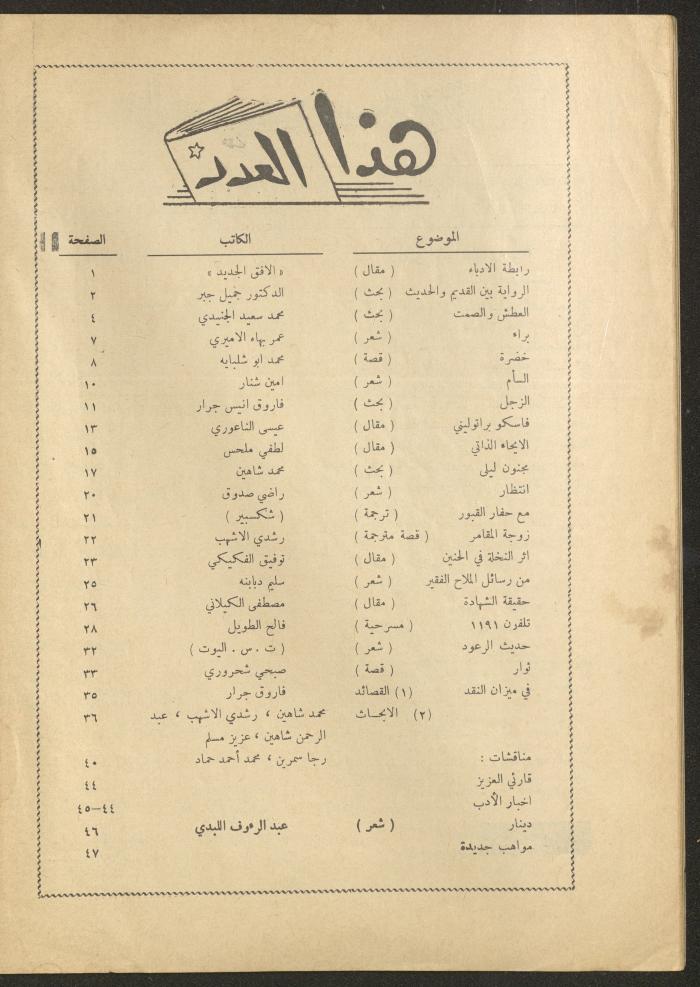 هذا العدد
الموضوع الكاتب الصفحة
رابطة الادباء ( مقال ) « الافق الجديد » ١
الرواية بين القديم والحديث ( بحث ) الدكتور جميل جبر ٢
العطش والصمت ( بحث ) محمد سعيد الجنيدي ٤
براء ( شعر ) عمر بهاء الاميري ٧
خضرة ( قصة ) محمد ابو شلبايه ٨
السأم ( شعر ) امين شنار ١٠
الزجل ( بحث ) فاروق انيس جرار ١١
فاسكو براتوليني ( مقال ) عيسى الناعوري ١٣
الايحاء الذاتي ( مقال ) لطفي ملحس ١٥
مجنون ليلى ( بحث ) محمد شاهين ١٧
انتظار ( شعر ) راضي صدوق ٢٠
مع حفار القبور ( ترجمة ) ( شكسبير ) ٢١
زوجة المقامر ( قصة مترجمة ) رشدي الاشهب ٢٢
اثر النخلة في الحنين ( مقال ) توفيق الفكيكي ٢٣
من رسائل الملاح الفقير ( شعر ) سليم دبابنه ٢٥
حقيقة الشهادة ( مقال ) مصطفى الكيلاني ٢٦
تلفون ١١٩١ ( مسرحية ) فالح الطويل ٢٨
حديث الرعود ( شعر ) ( ت . س . اليوت ) ٣٢
ثوار ( قصة ) صبحي شحروري ٣٣
في ميزان النقد (١) القصائد فاروق جرار ٣٥
(٢) الابحـاث محمد شاهين ، رشدي الاشهب ، عبد ٣٦
الرحمن شاهين ، عزيز مسلم
مناقشات : رجا سمرين ، محمد أحمد حماد ٤٠
قارئي العزيز ٤٤
اخبار الأدب ٤٤-٤٥
دينار ( شعر ) عبد الرءوف اللبدي ٤٦
مواهب جديدة ٤٧